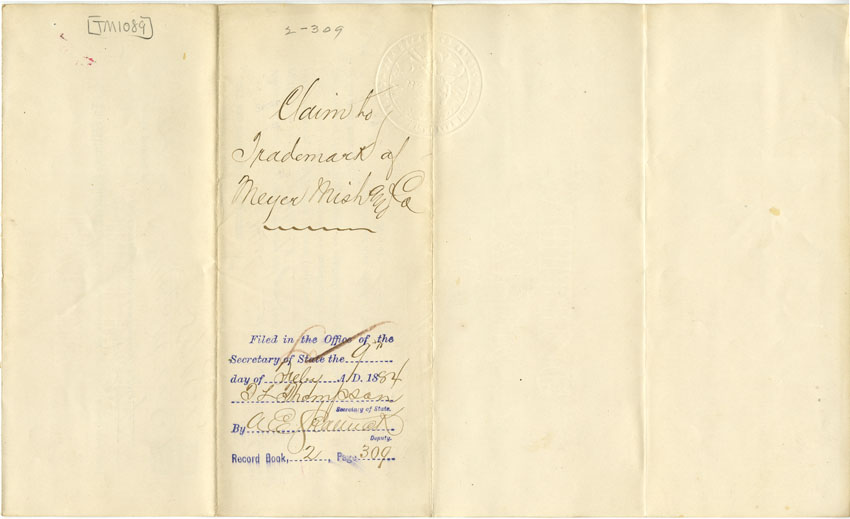 [TM1089]
2-309
Claim to
Trademark of
Meyer Mish & Co
Filed in the Office of the
Secretary of State the 9th
day of Feby A.D. 1884
T L Thompson
Secretary of State.
By A E
Deputy.
Record Book, 2, Page 309